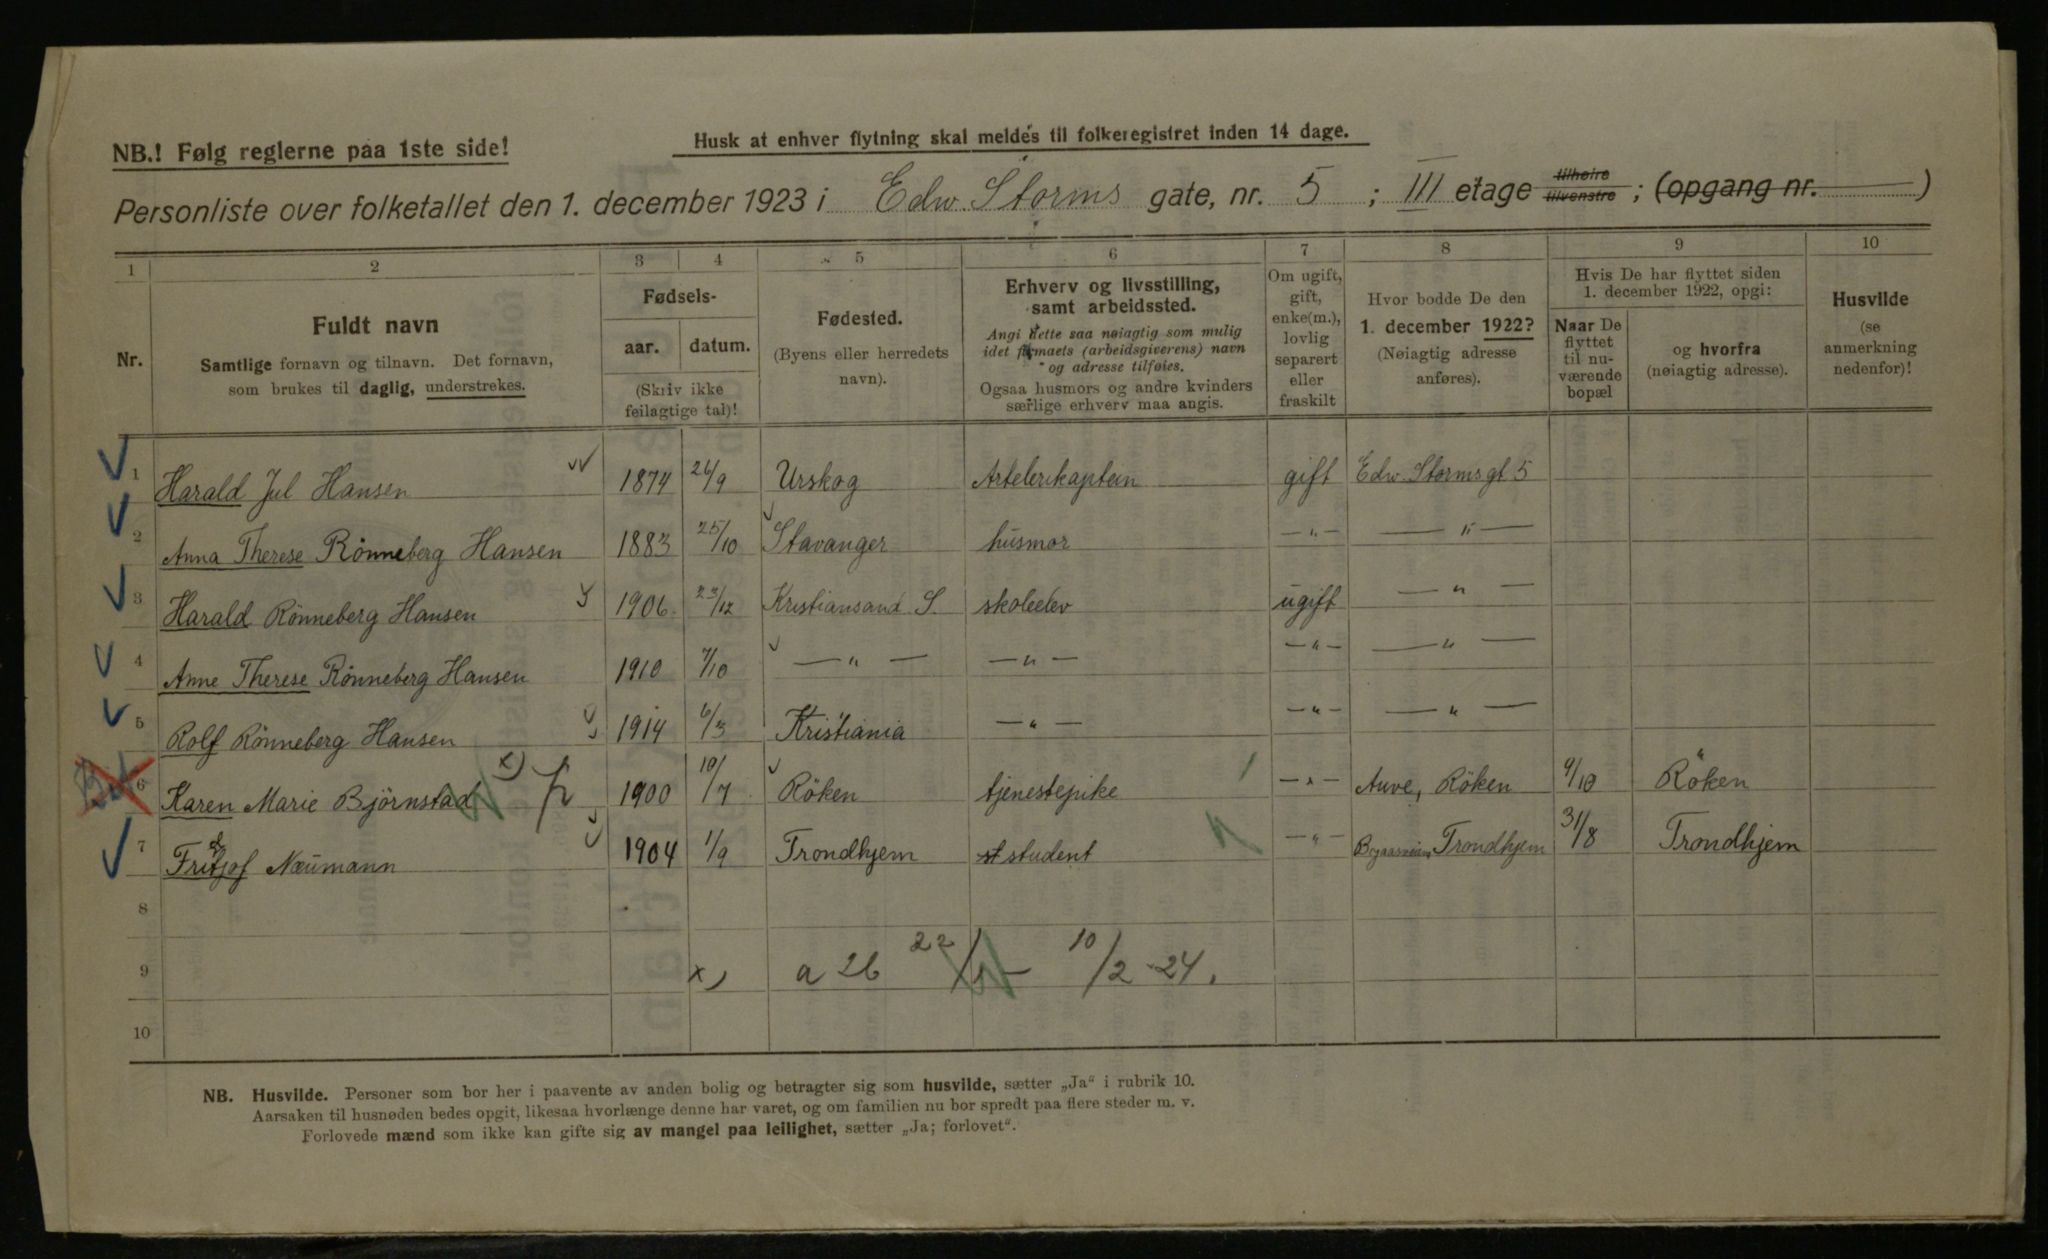 NB.! Følg reglerne paa 1ste side!
Husk at enhver flytning skal meldes til folkeregistret inden 14 dage.
Personliste over folketallet den 1. december 1923 i Edw. Storms gate, nr. 5 ; III etage tilhøire tilvenstre ; (opgang nr. )
1 2 3 4 5 6 7 8 9 10
Nr.
Fuldt navn
Samtlige fornavn og tilnavn. Det fornavn,
som brukes til daglig, understrekes.
Fødsels-
aar. datum.
(Skriv ikke
feilagtige tal)!
Fødested.
(Byens eller herredets
navn).
Erhverv og livsstilling,
samt arbeidssted.
Angi dette saa nøiagtig som mulig
idet firmaets (arbeidsgiverens) navn
og adresse tilføies.
Ogsaa husmors og andre kvinders
særlige erhverv maa angis.
Om ugift,
gift,
enke(m.),
lovlig
separert
eller
fraskilt
Hvor bodde De den
1. december 1922?
(Nøiagtig adresse
anføres).
Hvis De har flyttet siden
1. december 1922, opgi:
Naar De
flyttet
til nu-
værende
bopæl
og hvorfra
(nøiagtig adresse).
Husvilde
(se
anmerkning
nedenfor)!
1 Harald Jul Hansen 1874 26/9 Urskog Artelerikaptein gift Edw. Stormsgt 5
2 Anna Therese Rönneberg Hansen 1883 25/10 Stavanger husmor — " — — " —
3 Harald Rönneberg Hansen 1906 23/12 Kristiansand S. skoleelev ugift — " —
4 Anne Therese Rönneberg Hansen 1910 7/10 — " — — " — — " — — " —
5 Rolf Rönneberg Hansen 1914 6/3 Kristiania — " — — " — — " —
6 Karen Marie Björnstad x) 1900 10/7 Röken tjenestepike — " — Auve, Röken 9/10 Röken
7 Fritjof Neumann 1904 1/9 Trondhjem student — " — Trondhjem 31/8 Trondhjem
8
9 x) a 26 22/1 — 10/2-24.
10
NB. Husvilde. Personer som bor her i paavente av anden bolig og betragter sig som husvilde, sætter „Ja“ i rubrik 10.
Aarsaken til husnøden bedes opgit, likesaa hvorlænge denne har varet, og om familien nu bor spredt paa flere steder m. v.
Forlovede mænd som ikke kan gifte sig av mangel paa leilighet, sætter „Ja; forlovet“.